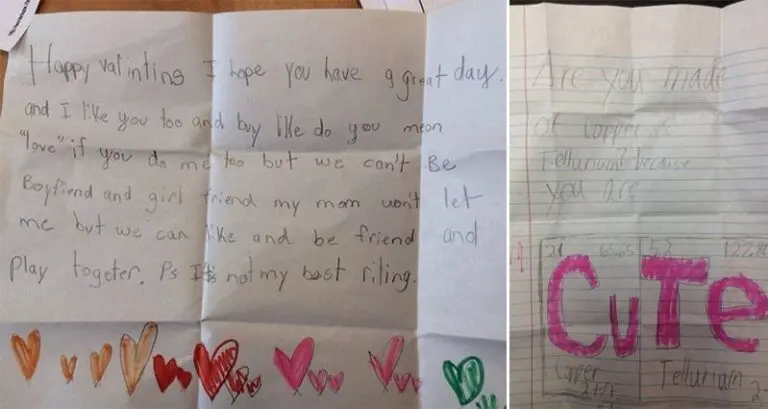 Happy valintins I hope you have a great day.
and I like you too and buy like do you mean
"love" if you do me too but we can't Be
Boyfiend and girl friend my mom won't let
me but we can like and be friend and
play togeter. Ps It's not my bast riting.
Are you made
of Copper &
Tellurium? because
you are
63.65 52
CuTe
Copper Tellurium